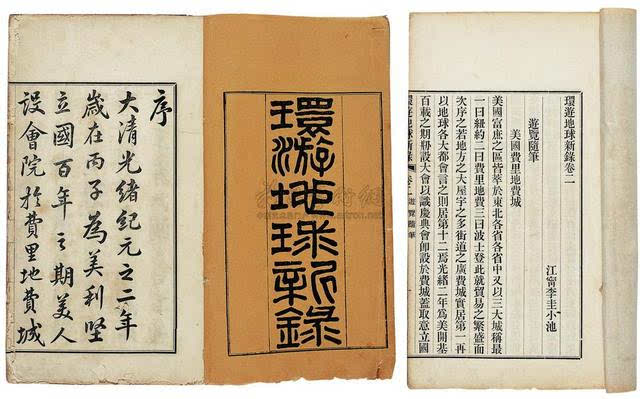 環游地球新錄
序
大清光緒紀元之二年
歲在丙子為美利堅
立國百年之期美人
設會院於費里地費城
環遊地球新錄卷二
江甯李圭小池
遊覽隨筆
美國費里地費城
美國富庶之區皆萃於東北各省各省中又以三大城稱最
一曰紐約二曰費里地費三曰波士登此就貿易之繁盛而
次序之若地方之大屋宇之多街道之廣費城實居第一再
以地球各大都會言之則居第十二焉光緒二年為美開基
百載之期刱設大會以識慶典會卽設於費城蓋取意立國
環遊地球新錄 卷二 遊覽隨筆